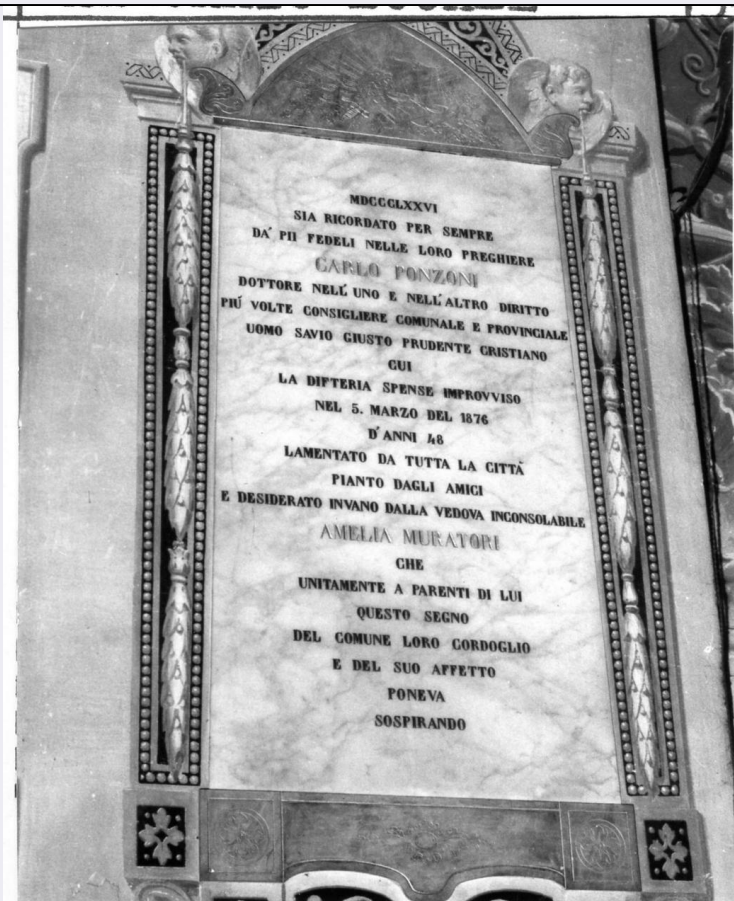 MDCCCLXXVI
SIA RICORDATO PER SEMPRE
DA' PII FEDELI NELLE LORO PREGHIERE
CARLO PONZONI
DOTTORE NELL'UNO E NELL'ALTRO DIRITTO
PIÚ VOLTE CONSIGLIERE COMUNALE E PROVINCIALE
UOMO SAVIO GIUSTO PRUDENTE CRISTIANO
CUI
LA DIFTERIA SPENSE IMPROVVISO
NEL 5. MARZO DEL 1876
D'ANNI 48
LAMENTATO DA TUTTA LA CITTÀ
PIANTO DAGLI AMICI
E DESIDERATO INVANO DALLA VEDOVA INCONSOLABILE
AMELIA MURATORI
CHE
UNITAMENTE A PARENTI DI LUI
QUESTO SEGNO
DEL COMUNE LORO CORDOGLIO
E DEL SUO AFFETTO
PONEVA
SOSPIRANDO